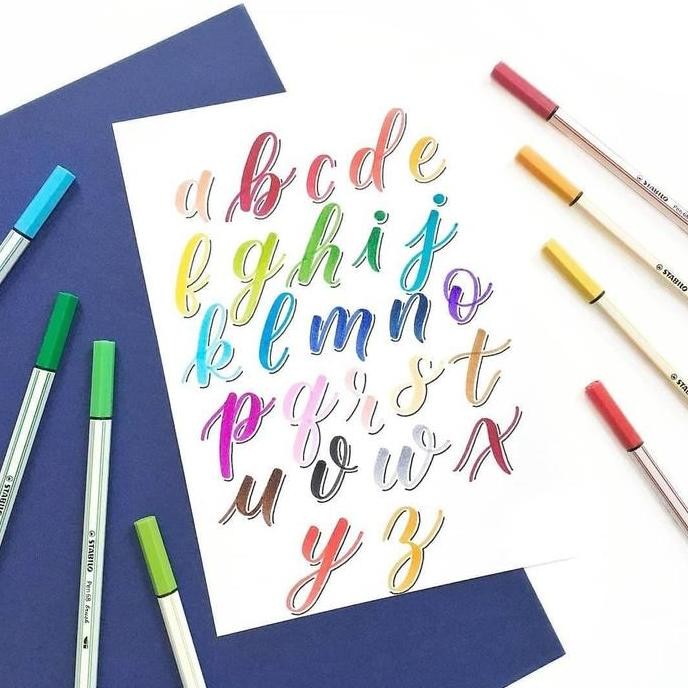 a b c d e
f g h i j
k l m n o
p q r s t
u v w x
y z
STABILO Pen 68
STABILO
STABILO
STABILO
STABILO Pen 68 brush